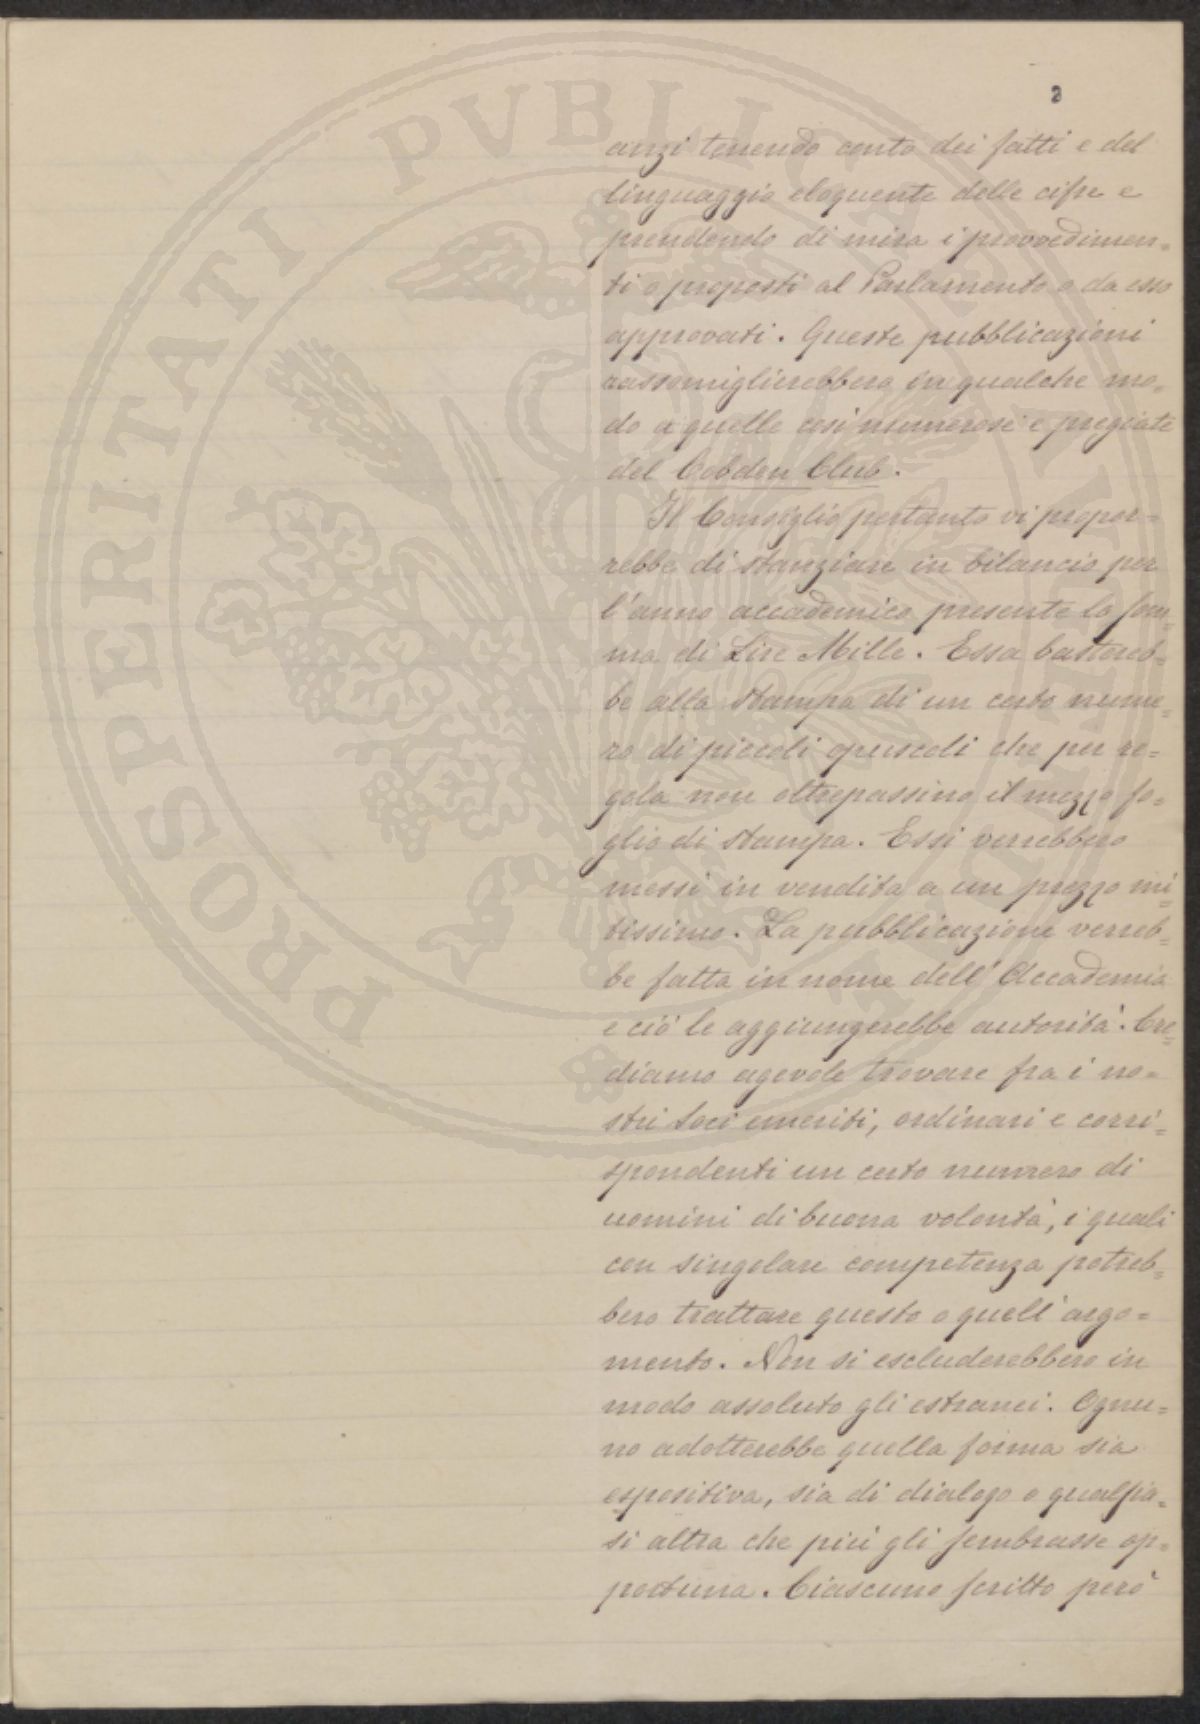 2
anzi tenendo conto dei fatti e del
linguaggio eloquente delle cifre e
prendendo di mira i provvedimen=
ti o proposti al Parlamento o da esso
approvati. Queste pubblicazioni
rassomiglierebbero in qualche mo=
do a quelle così numerose e pregiate
del Cobden Club.
Il Consiglio pertanto vi propor=
rebbe di stanziare in bilancio per
l'anno accademico presente la som=
ma di Lire Mille. Essa bastereb=
be alla stampa di un certo nume=
ro di piccoli opuscoli che per re=
gola non oltrepassino il mezzo fo=
glio di stampa. Essi verrebbero
messi in vendita a un prezzo mi=
tissimo. La pubblicazione verreb=
be fatta in nome dell'Accademia
e ciò le aggiungerebbe autorità. Cre=
diamo agevole trovare fra i no=
stri Soci emeriti, ordinari e corri=
spondenti un certo numero di
uomini di buona volontà, i quali
con singolare competenza potreb=
bero trattare questo o quell'argo=
mento. Non si escluderebbero in
modo assoluto gli estranei. Ognu=
no adotterebbe quella forma sia
espositiva, sia di dialogo o qualsia=
si altra che più gli sembrasse op=
portuna. Ciascuno scritto però
PROSPERITATI PVBLICAE